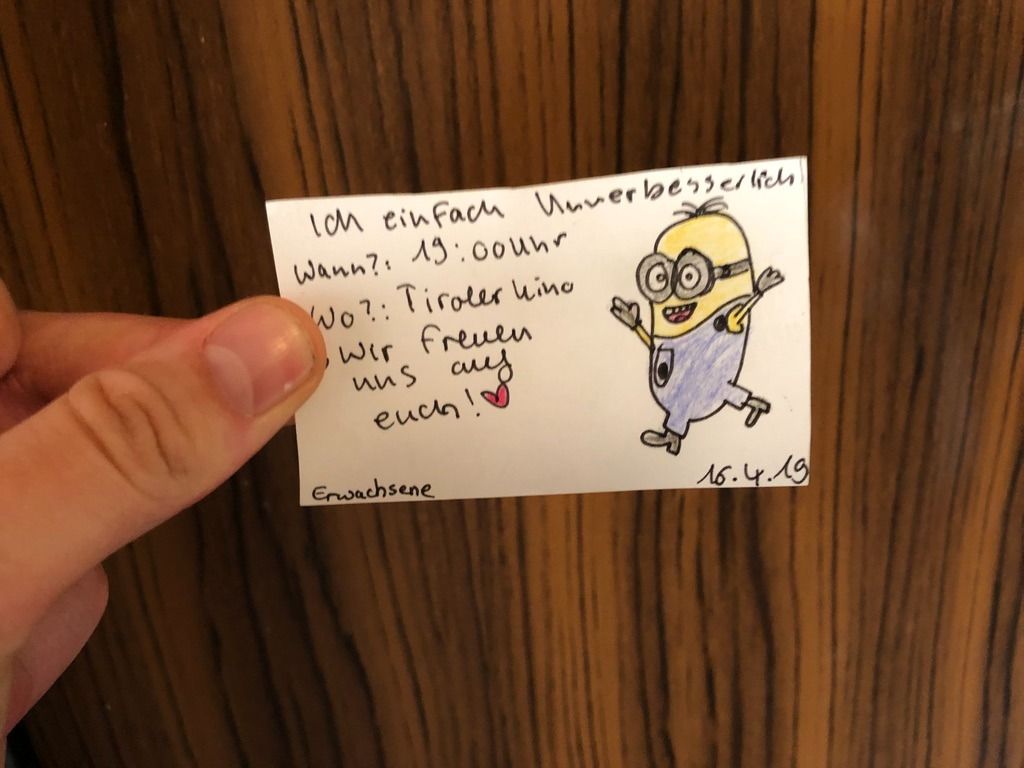 Ich einfach Unverbesserlich
Wann?: 19:00 Uhr
Wo?: Tiroler Kino
Wir freuen
uns auf
euch!
Erwachsene
16.4.19